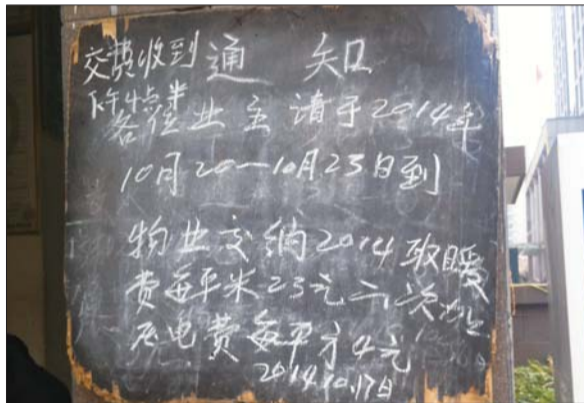 交费收到
下午4点半
通 知
各位业主请于2014年
10月20—10月25日到
物业交纳2014取暖
费每平米23元二次加
压电费每平方4元
2014.10.17日